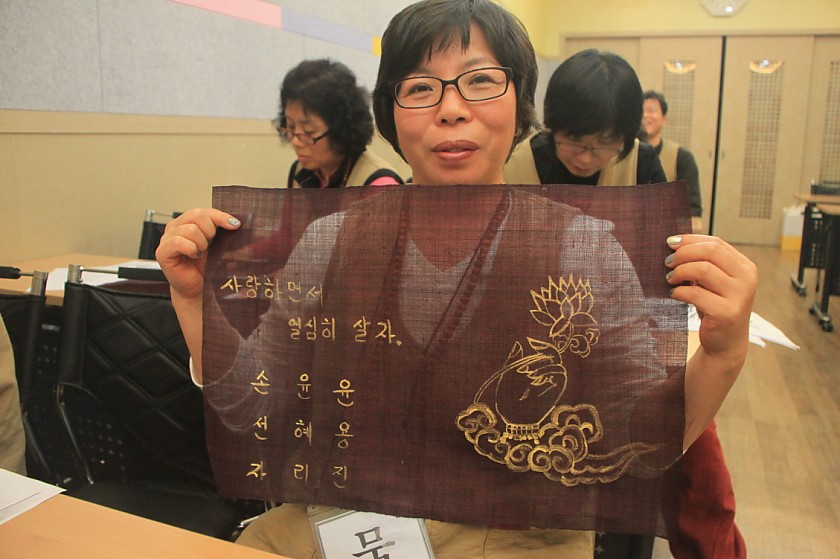 사랑하면서
열심히 살자.
손 윤 윤
선 혜 용
자 리 진
묵